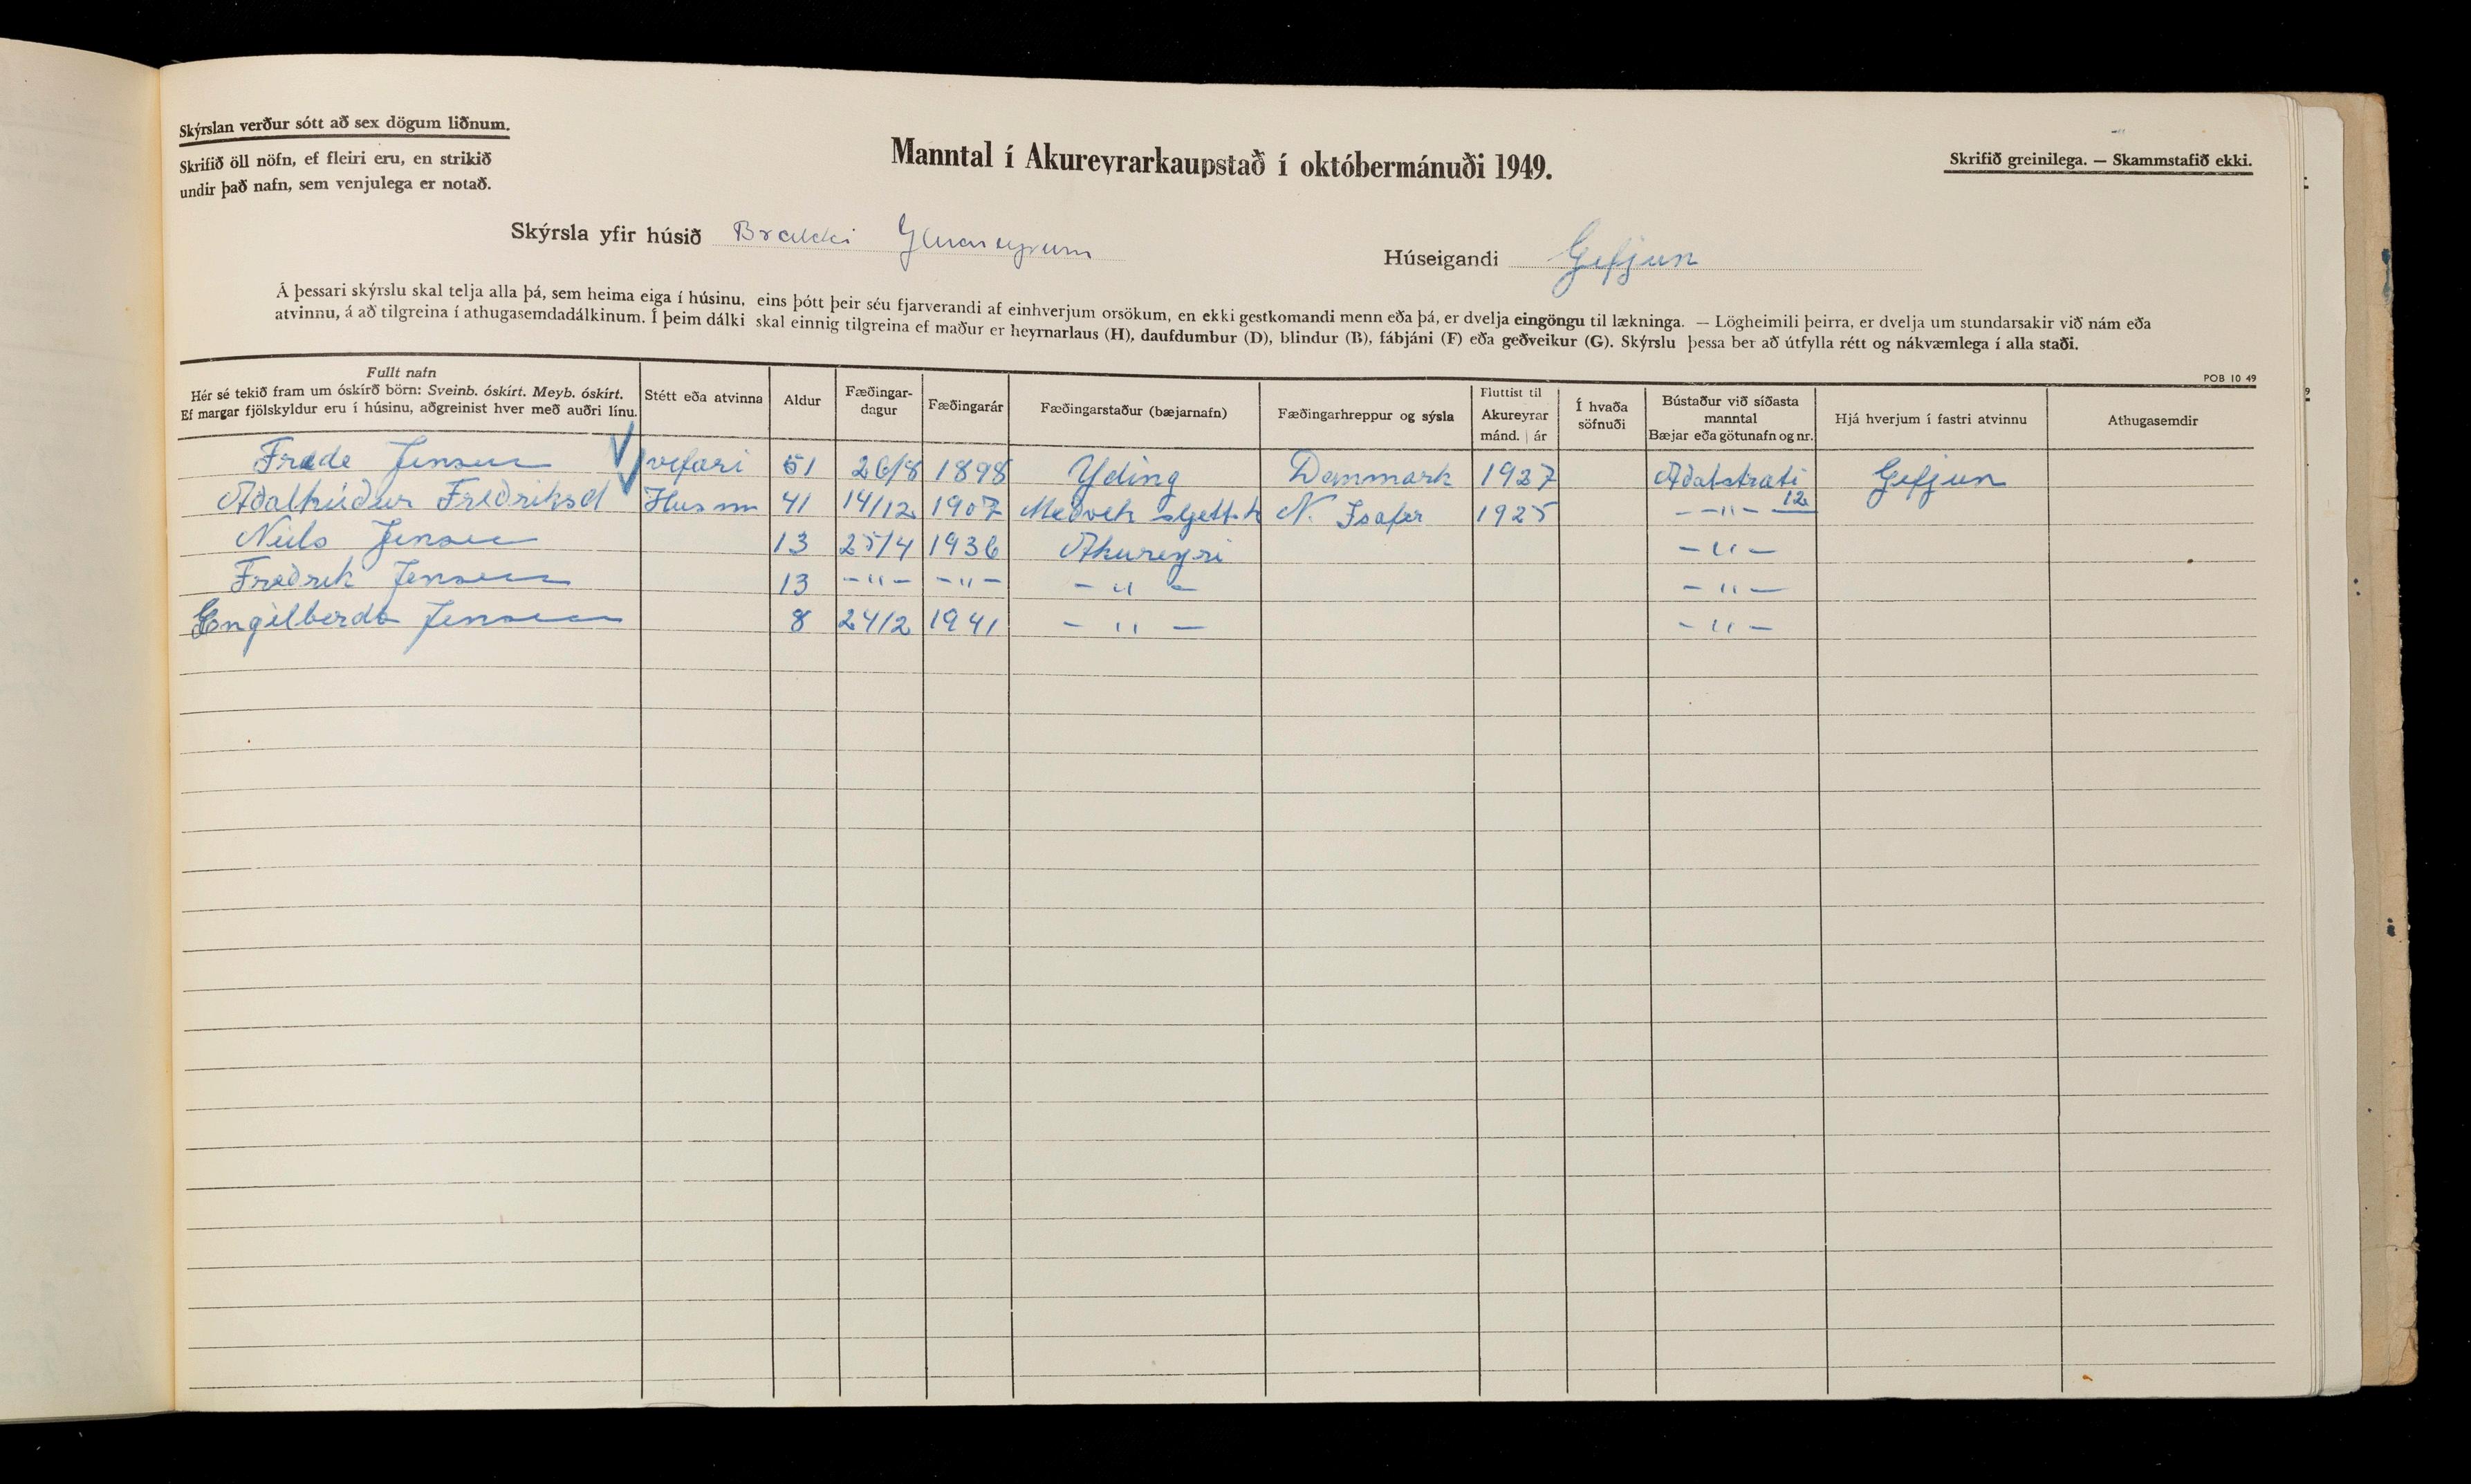 Skýrslan verður sótt að sex dögum liðnum.
Skrifið öll nöfn, ef fleiri eru, en strikið
undir það nafn, sem venjulega er notað.
Manntal í Akureyrarkaupstað í októbermánuði 1949.
Skrifið greinilega. — Skammstafið ekki.
Skýrsla yfir húsið Brakki Glerareyrum
Húseigandi Gefjun
Á þessari skýrslu skal telja alla þá, sem heima eiga í húsinu, eins þótt þeir séu fjarverandi af einhverjum orsökum, en ekki gestkomandi menn eða þá, er dvelja eingöngu til lækninga. — Lögheimili þeirra, er dvelja um stundarsakir við nám eða
atvinnu, á að tilgreina í athugasemdadálkinum. Í þeim dálki skal einnig tilgreina ef maður er heyrnarlaus (H), daufdumbur (D), blindur (B), fábjáni (F) eða geðveikur (G). Skýrslu þessa ber að útfylla rétt og nákvæmlega í alla staði.
POB 10 49
Fullt nafn
Hér sé tekið fram um óskírð börn: Sveinb. óskírt. Meyb. óskírt.
Ef margar fjölskyldur eru í húsinu, aðgreinist hver með auðri línu.
Stétt eða atvinna
Aldur
Fæðingar-
dagur
Fæðingarár
Fæðingarstaður (bæjarnafn)
Fæðingarhreppur og sýsla
Fluttist til
Akureyrar
mánd. | ár
Í hvaða
söfnuði
Bústaður við síðasta
manntal
Bæjar eða götunafn og nr.
Hjá hverjum í fastri atvinnu
Athugasemdir
Frede Jensen vefari 51 26/8 1898 Yding Danmark 1927 Aðalstrati Gefjun
Aðalhúður Fredriksd Husm 41 14/12 1907 N. Isafer 1925 — " — 12
Niels Jensen 13 25/4 1936 Akureyri — " —
Fredrik Jensen 13 — " — — " — — " — — " —
Engilberda Jensen 8 24/2 1941 — " — — " —